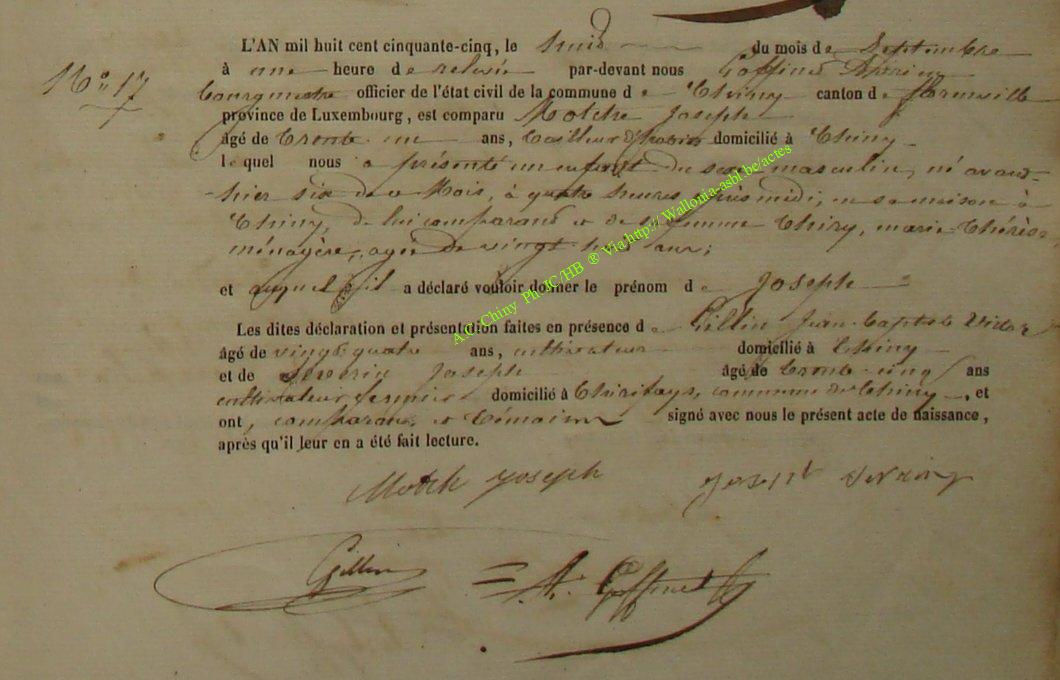 N° 17
L'AN mil huit cent cinquante-cinq, le huit du mois de Septembre
à une heure de relevée par-devant nous Goffinet
bourgmestre officier de l'état civil de la commune de Chiny canton de Florenville
province de Luxembourg, est comparu Motch Joseph
âgé de trente un ans, tailleur d'habits domicilié à Chiny
lequel nous a présenté un enfant du sexe masculin, né avant
-hier six de ce Mois, à quatre heures après midi, en sa maison à
Chiny, de lui comparant et de sa femme Thiry, marie Thérèse
ménagère, agée de vingt ans;
et auquel il a déclaré vouloir donner le prénom de Joseph
Les dites déclaration et présentation faites en présence de Gillin Jean-Baptiste Victor
âgé de vingt quatre ans, cultivateur domicilié à Chiny
et de Severin Joseph âgé de trente-cinq ans
cultivateur fermier domicilié à commune de Chiny, et
ont, comparant et témoins signé avec nous le présent acte de naissance,
après qu'il leur en a été fait lecture.
Motch Joseph Joseph Severin
Gillin A. Goffinet
A.C. Chiny Ph JC/HB ® Via http://Wallonia-asbl.be/actes